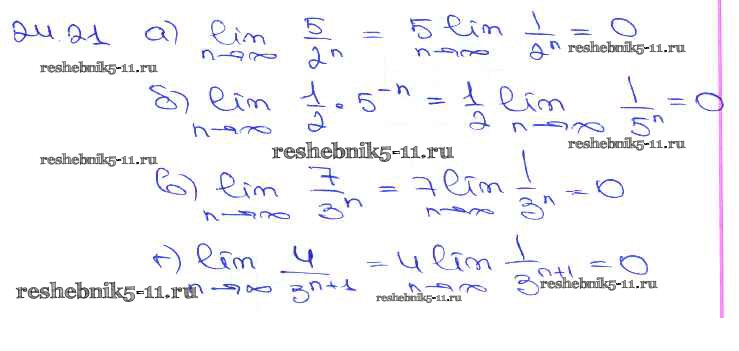 24.21 а) lim n→∞ 5/2ⁿ = 5 lim n→∞ 1/2ⁿ = 0
reshebnik5-11.ru reshebnik5-11.ru
б) lim n→∞ 1/2 · 5⁻ⁿ = 1/2 lim n→∞ 1/5ⁿ = 0
reshebnik5-11.ru reshebnik5-11.ru reshebnik5-11.ru
в) lim n→∞ 7/3ⁿ = 7 lim n→∞ 1/3ⁿ = 0
г) lim n→∞ 4/3ⁿ⁺¹ = 4 lim n→∞ 1/3ⁿ⁺¹ = 0
reshebnik5-11.ru reshebnik5-11.ru reshebnik5-11.ru